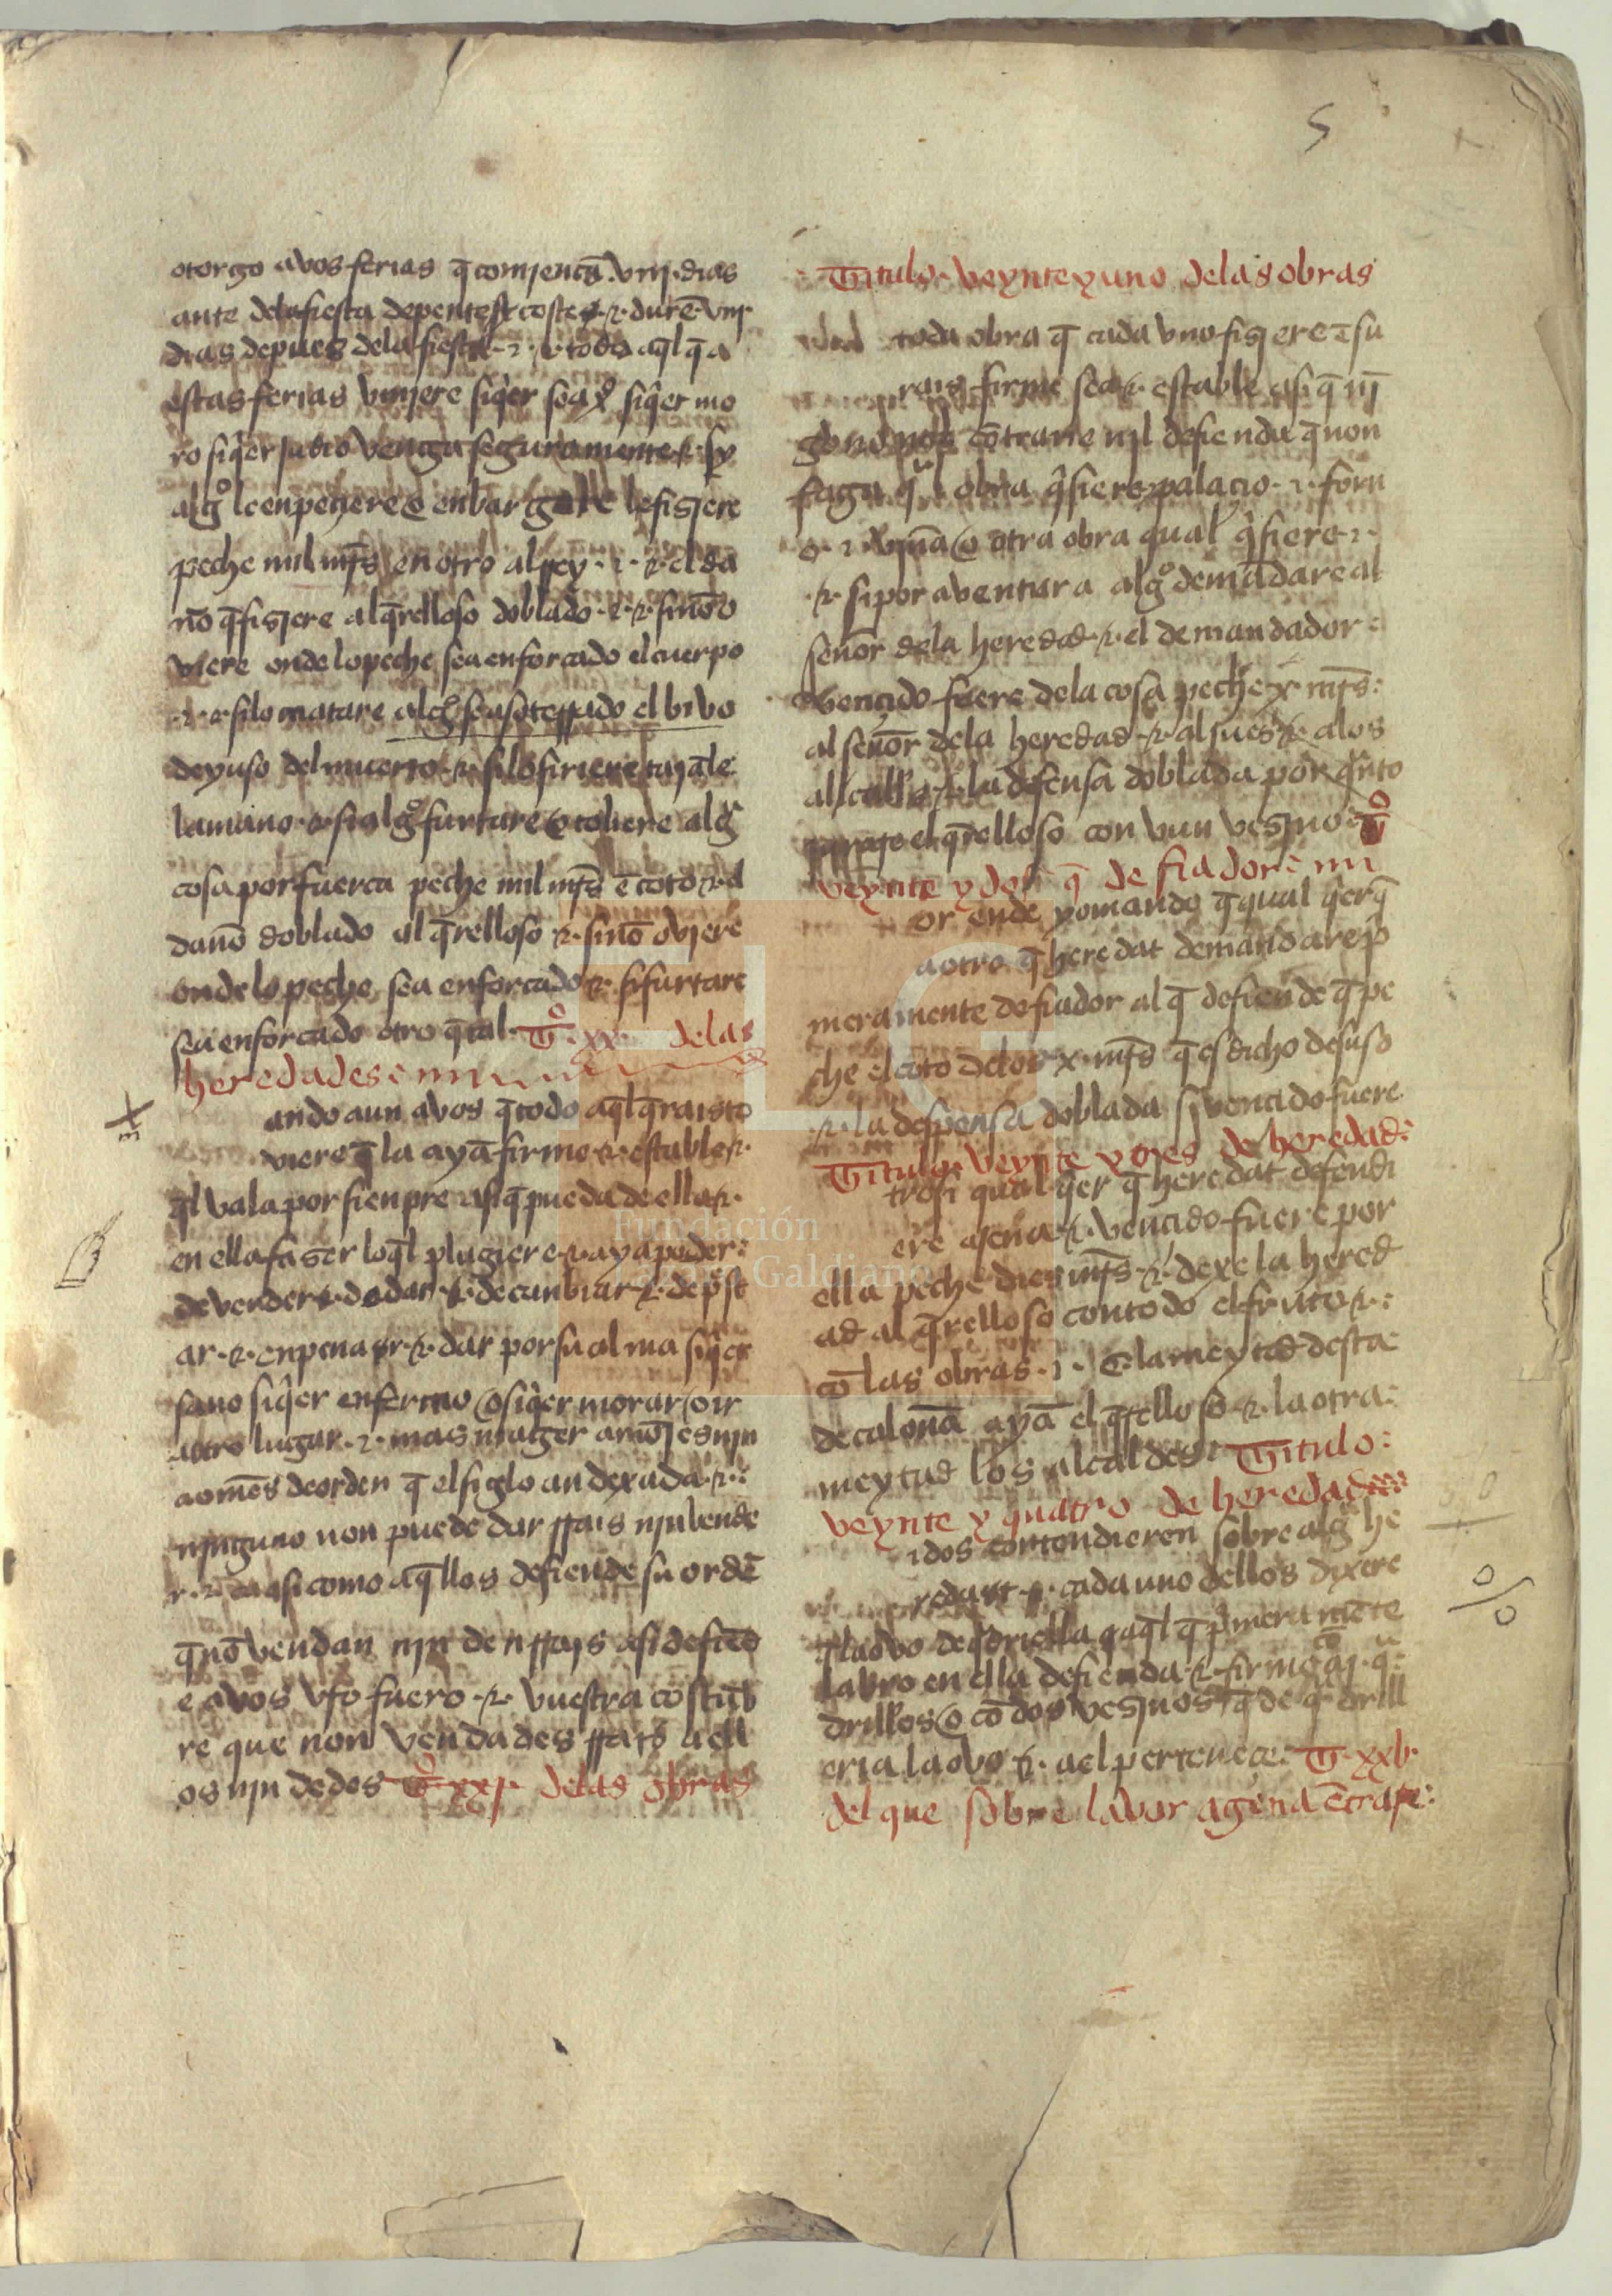 5
otorgo a vos ferias q̃ comiencã viij dias
ante dela fiesta de pentecostes ⁊ durẽ viij
dias depues dela fiesta ⁊ todo aq̃l q̃ a
estas ferias viniere siq̃er sea xº siq̃er mo
ro siq̃er judio venga seguramente ⁊ sy
algº le enpeçiere o enbargare le fisiere
peche mil mr̃s en otro al rey ⁊ el da
ño q̃ fisiere al q̃relloso doblado ⁊ si nõ o
viere onde lo peche sea enforcado el cuerpo
⁊ si lo matare sea soterrado el bivo
deyuso del muerto ⁊ si lo firiere tajãle
la mano ⁊ si algº furtare o toliere algª
cosa por fuerca peche mil mr̃s ẽ coto ⁊ el
daño doblado al q̃relloso ⁊ si nõ oviere
onde lo peche sea enforcado ⁊ si furtare
sea enforcado otro q̃ tal Tº xx delas
heredades
ando aun a vos q̃ todo aq̃l q̃ rais to
viere q̃ la ayã firme ⁊ estable ⁊
q̃l vala por sienpre asi q̃ pueda de ella ⁊
en ella faser lo q̃l plugiere ⁊ aya poder
de vender ⁊ de dar ⁊ de canbiar ⁊ de p̃st
ar ⁊ enpenar ⁊ dar por su alma siq̃er
sano siq̃er enfermo o siq̃er morar o ir
a otro lugar ⁊ mas a mõjes nin
a omẽs de orden q̃ el siglo an dexada ⁊
ninguno non puede dar rrais nin vende
r ⁊ ca asi como aq̃llos defiende su ordẽ
q̃ nõ vendan nin den rrais asi defiẽd
e a vos vr̃o fuero ⁊ vuestra costũb
re que non vendades rrais a ell
os nin dedes Tº xxj delas obras
Titulo veynte y uno delas obras
toda obra q̃ cada vno fisiere ẽ su
rais firme sea ⁊ estable asi q̃ nĩ
guno nõ cõtrarie nil defienda q̃ non
faga q̃l obra q̃siere palacio ⁊ forn
o ⁊ viña o otra obra qual q̃siere ⁊
⁊ si por aventura algº demãdare al
señor dela heredad ⁊ el demandador
vencido fuere dela cosa peche x mr̃s
al señor dela heredad ⁊ al jues ⁊ alos
alcalls ⁊ la defensa doblada por q̃nto
el q̃relloso con vun vesino Tº
veynte y dos q̃ de fiador
or ende yo mando q̃ qual q̃er q̃
a otro q̃ heredat demandare p̃
meramente de fiador al q̃ defiende q̃ pe
che el coto delos x mr̃s q̃ es dicho desuso
⁊ la despensa doblada si vencido fuere
Titulo veynte y tres de heredad
trosi qual q̃er q̃ heredat defendi
ere ajena ⁊ vencido fuere por
ella peche dies mr̃s ⁊ dexe la hered
ad al q̃relloso con todo el fruto ⁊
cõ las obras ⁊ la meytad desta
de caloña ayã el q̃relloso ⁊ la otra
meytad los alcaldes Titulo
veynte y quatro de heredades
i dos contondieren sobre algª he
redat ⁊ cada uno dellos dixere
aq̃l q̃ p̃meramẽte
labro en ella defienda ⁊ firme cõ q̃
drillos o cõ dos vesinos q̃ de q̃drill
eria la ovo ⁊ a el pertenece T xxv
del que sobre lavor agena ẽtrare
Fundación
Galdiano